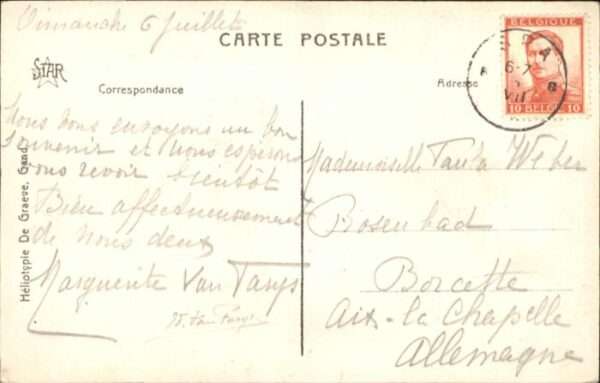 Dimanche 6 Juillet
CARTE POSTALE
STAR
Correspondance
Adresse
BELGIQUE
10 BELGIË 10
6-7
VII
Nous vous envoyons un bon
souvenir et nous espérons
vous revoir bientôt
Bien affectueusement
de nous deux
Marguerite Van
Mademoiselle Paula Weber
Rosenbad
Borcette
Aix-la Chapelle
Allemagne
Héliotypie De Graeve, Gand.